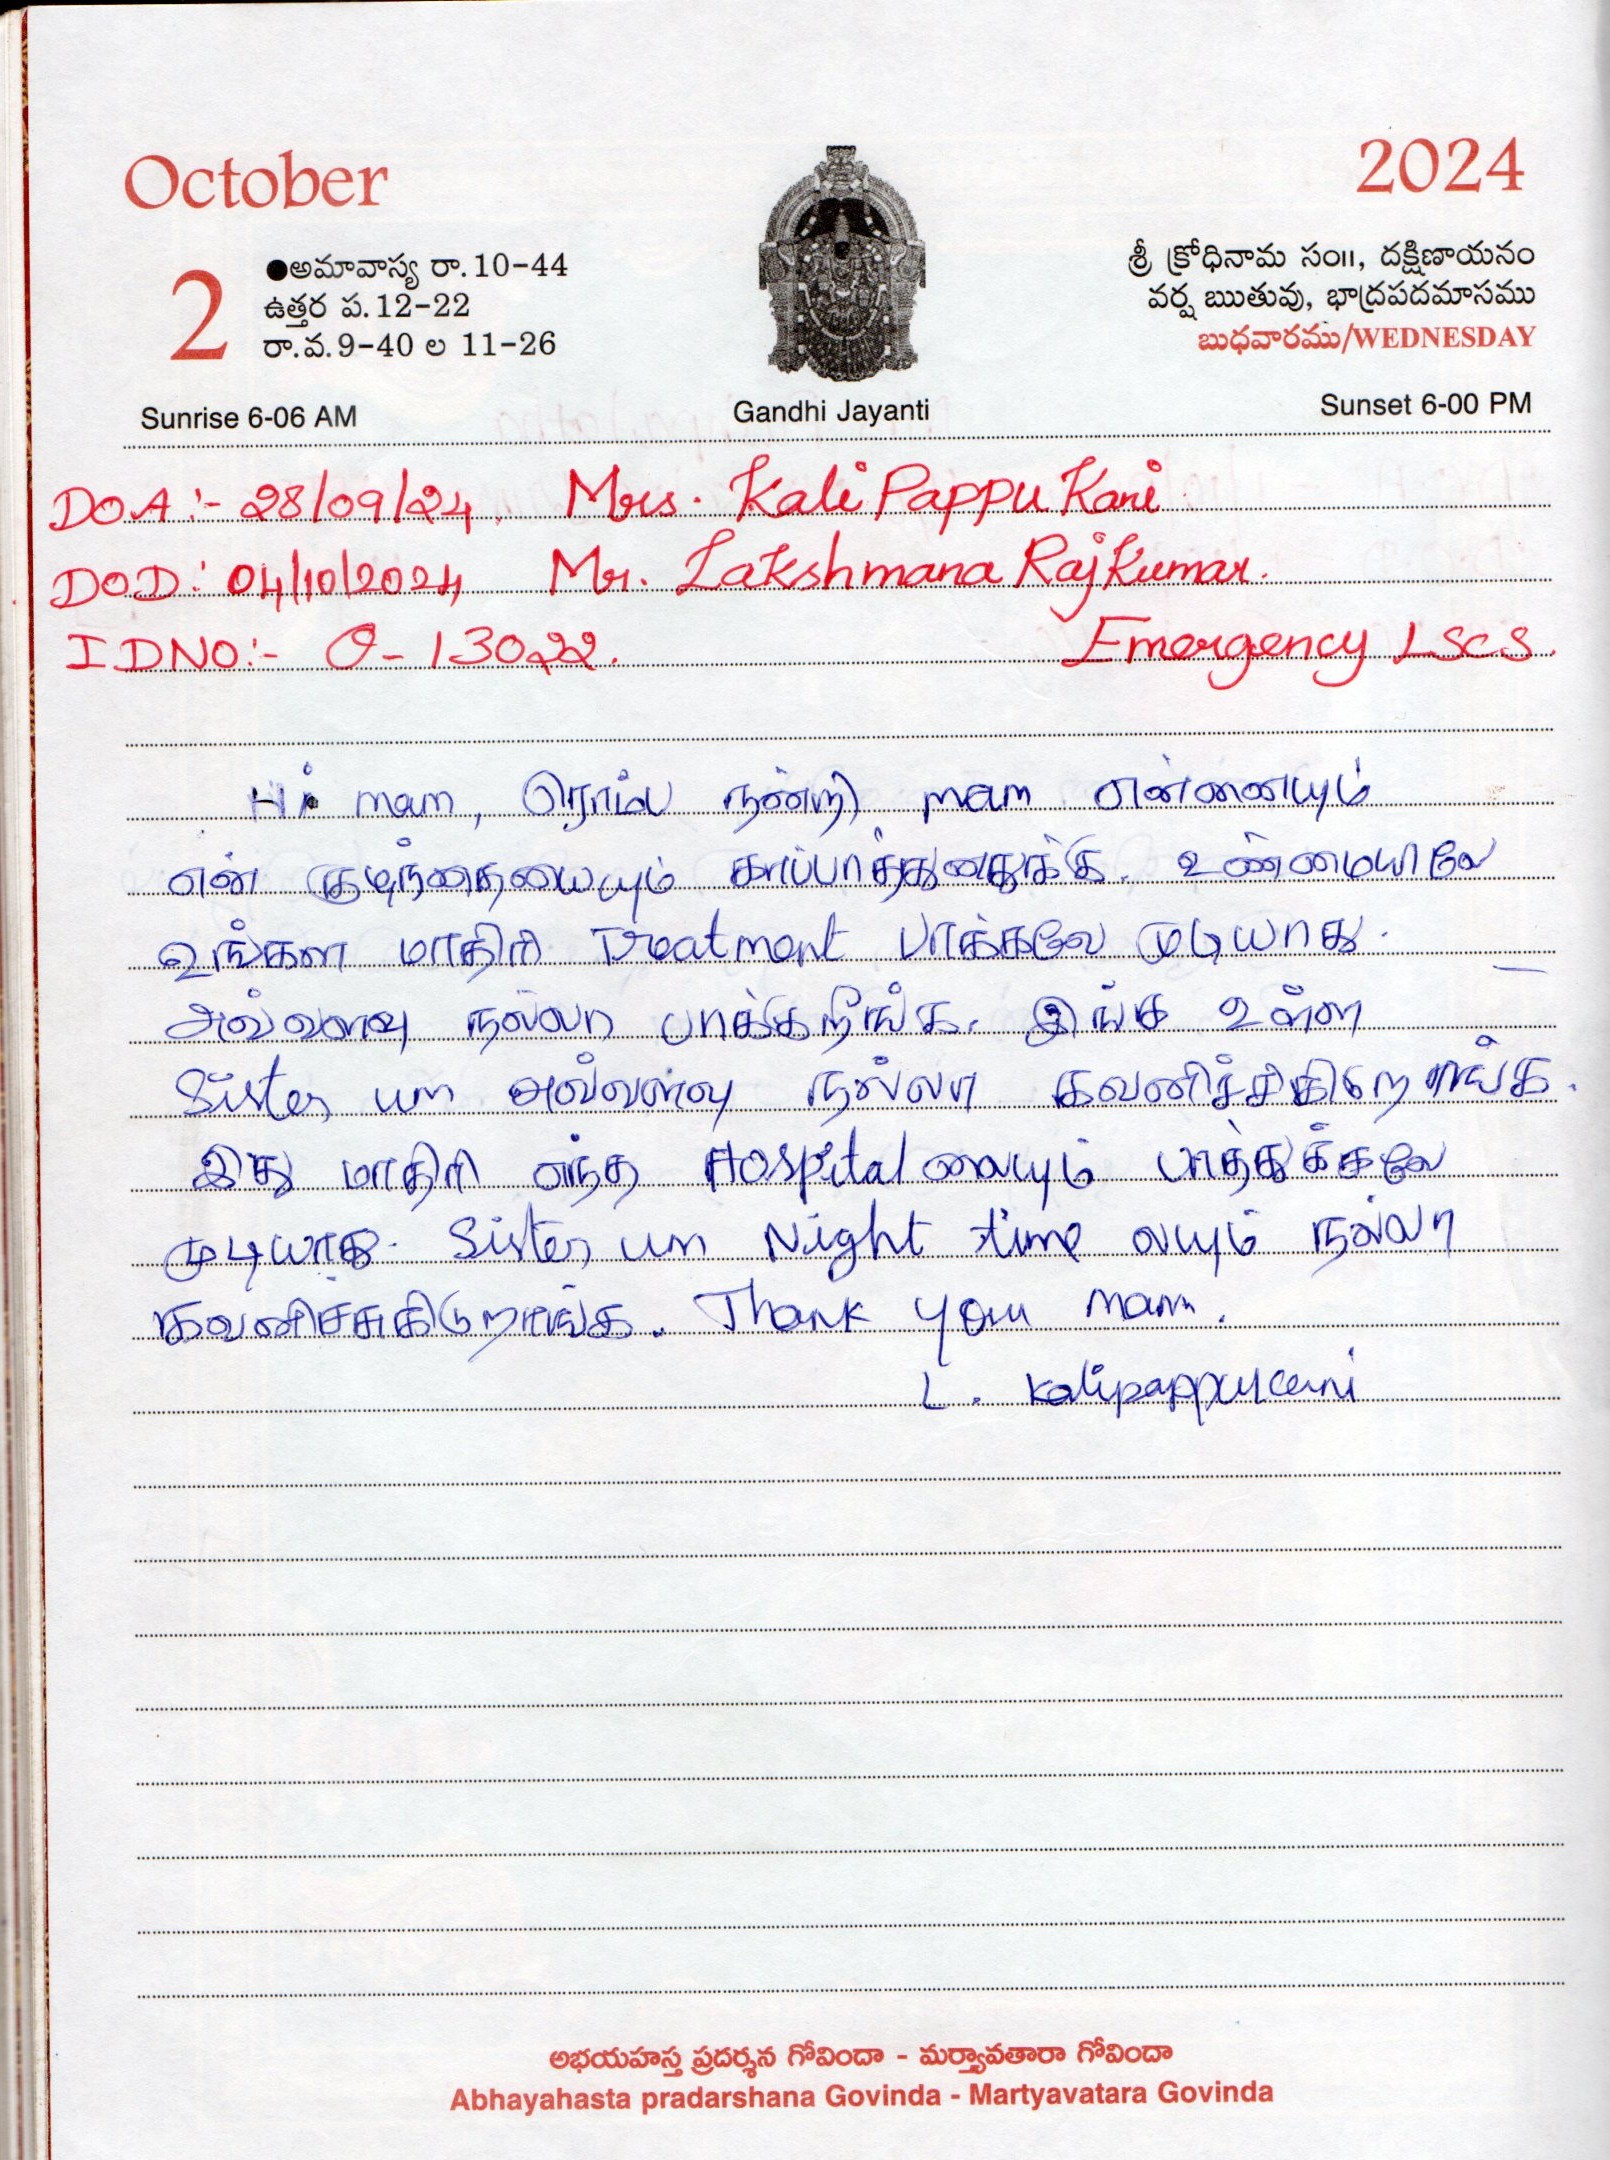 October
2024
2
●అమావాస్య రా.10-44
ఉత్తర ప.12-22
రా.వ.9-40 ల 11-26
శ్రీ క్రోధినామ సం॥, దక్షిణాయనం
వర్ష ఋతువు, భాద్రపదమాసము
బుధవారము/WEDNESDAY
Sunrise 6-06 AM
Gandhi Jayanti
Sunset 6-00 PM
DOA :- 28/09/24. Mrs. Kali Pappu Kani
DOD : 04/10/2024 Mr. Lakshmana RajKumar.
IDNO:- O-13022. Emergency LSCS.
Hi mam, ரொம்ப நன்றி mam என்னையும்
என் குழந்தையையும் காப்பாத்துனதுக்கு. உண்மையாலே
உங்கள மாதிரி Treatment பாக்கவே முடியாது.
அவ்வளவு நல்லா பாக்கறீங்க. இங்க உள்ள
Sister யும் அவ்வளவு நல்லா கவனிச்சிகிறாங்க.
இது மாதிரி எந்த Hospital லையும் பாத்துக்கவே
முடியாது. Sister யும் Night time லயும் நல்லா
கவனிச்சுகிடுறாங்க. Thank you mam.
L. Kalipappukani
అభయహస్త ప్రదర్శన గోవిందా - మర్త్యావతారా గోవిందా
Abhayahasta pradarshana Govinda - Martyavatara Govinda